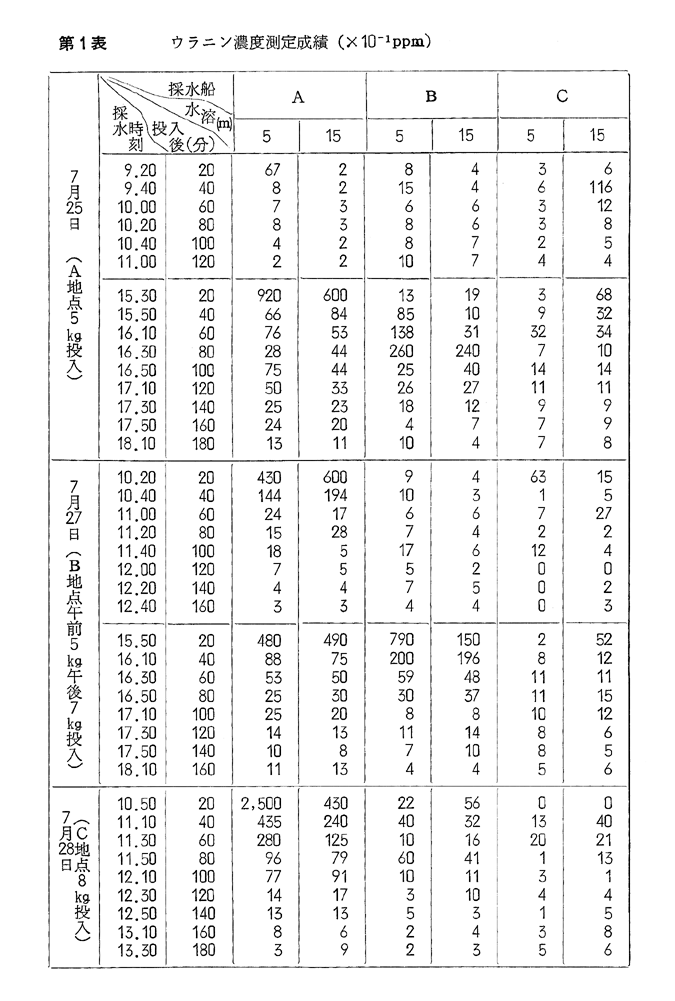 第1表 ウラニン濃度測定成績 (×10⁻¹ppm)
採水船 A B C
水溶(m)
採水時刻 投入後(分) 5 15 5 15 5 15
7月25日(A地点5kg投入)
9.20 20 67 2 8 4 3 6
9.40 40 8 2 15 4 6 116
10.00 60 7 3 6 6 3 12
10.20 80 8 3 8 6 3 8
10.40 100 4 2 8 7 2 5
11.00 120 2 2 10 7 4 4
15.30 20 920 600 13 19 3 68
15.50 40 66 84 85 10 9 32
16.10 60 76 53 138 31 32 34
16.30 80 28 44 260 240 7 10
16.50 100 75 44 25 40 14 14
17.10 120 50 33 26 27 11 11
17.30 140 25 23 18 12 9 9
17.50 160 24 20 4 7 7 9
18.10 180 13 11 10 4 7 8
7月27日(B地点午前5kg午後7kg投入)
10.20 20 430 600 9 4 63 15
10.40 40 144 194 10 3 1 5
11.00 60 24 17 6 6 7 27
11.20 80 15 28 7 4 2 2
11.40 100 18 5 17 6 12 4
12.00 120 7 5 5 2 0 0
12.20 140 4 4 7 5 0 2
12.40 160 3 3 4 4 0 3
15.50 20 480 490 790 150 2 52
16.10 40 88 75 200 196 8 12
16.30 60 53 50 59 48 11 11
16.50 80 25 30 30 37 11 15
17.10 100 25 20 8 8 10 12
17.30 120 14 13 11 14 8 6
17.50 140 10 8 7 10 8 5
18.10 160 11 13 4 4 5 6
7月28日(C地点8kg投入)
10.50 20 2,500 430 22 56 0 0
11.10 40 435 240 40 32 13 40
11.30 60 280 125 10 16 20 21
11.50 80 96 79 60 41 1 13
12.10 100 77 91 10 11 3 1
12.30 120 14 17 3 10 4 4
12.50 140 13 13 5 3 1 5
13.10 160 8 6 2 4 3 8
13.30 180 3 9 2 3 5 6